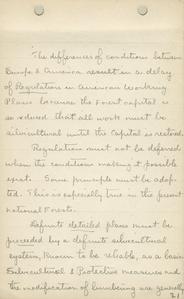 The differences of conditions between
Europe & America result in a delay
of Regulation in American Working
Plans because the Forest Capital is
so reduced that all work must be
silvicultural until the Capital is restored.
Regulation must not be deferred
when the conditions making it possible
exist. Some principle must be adop-
ted. This is especially true in the present
national Forests.
Definite detailed plans must be
preceded by a definite silvicultural
system, known to be reliable, as a basis.
Silvicultural & Protective measures and
the modification of lumbering are generally